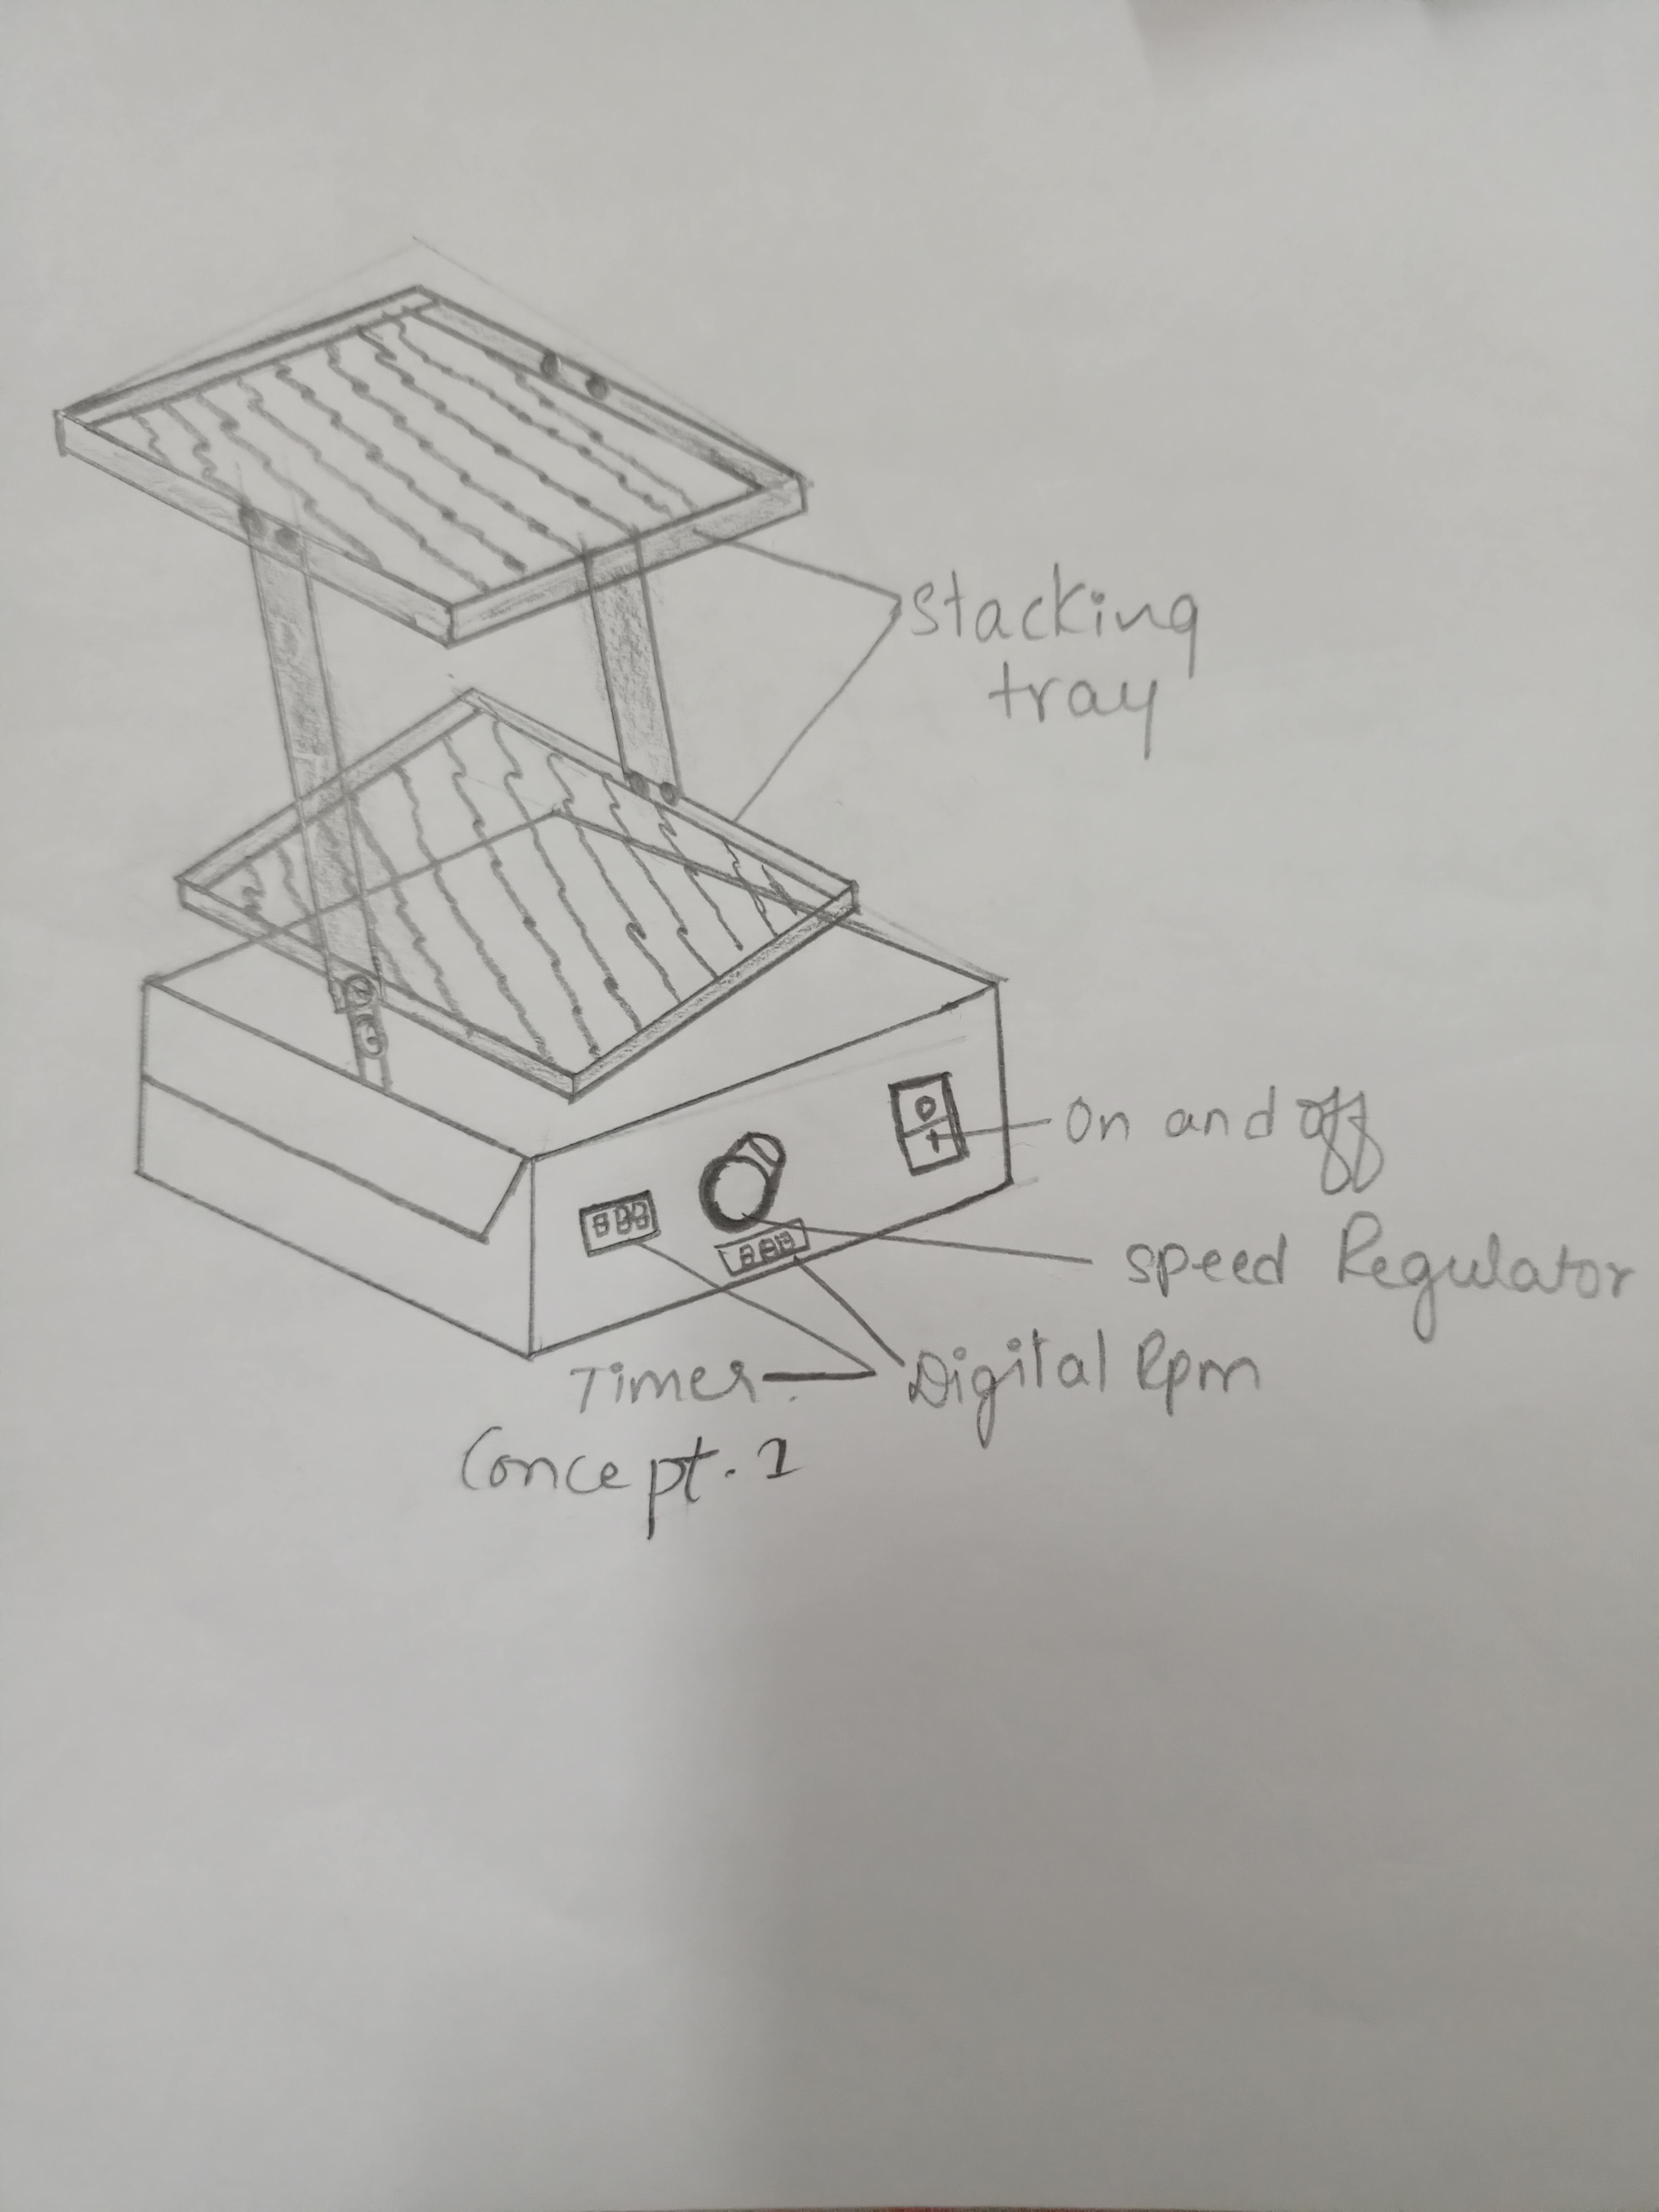 Stacking
tray
On and off
Speed Regulator
Timer
Digital Rpm
Concept.1